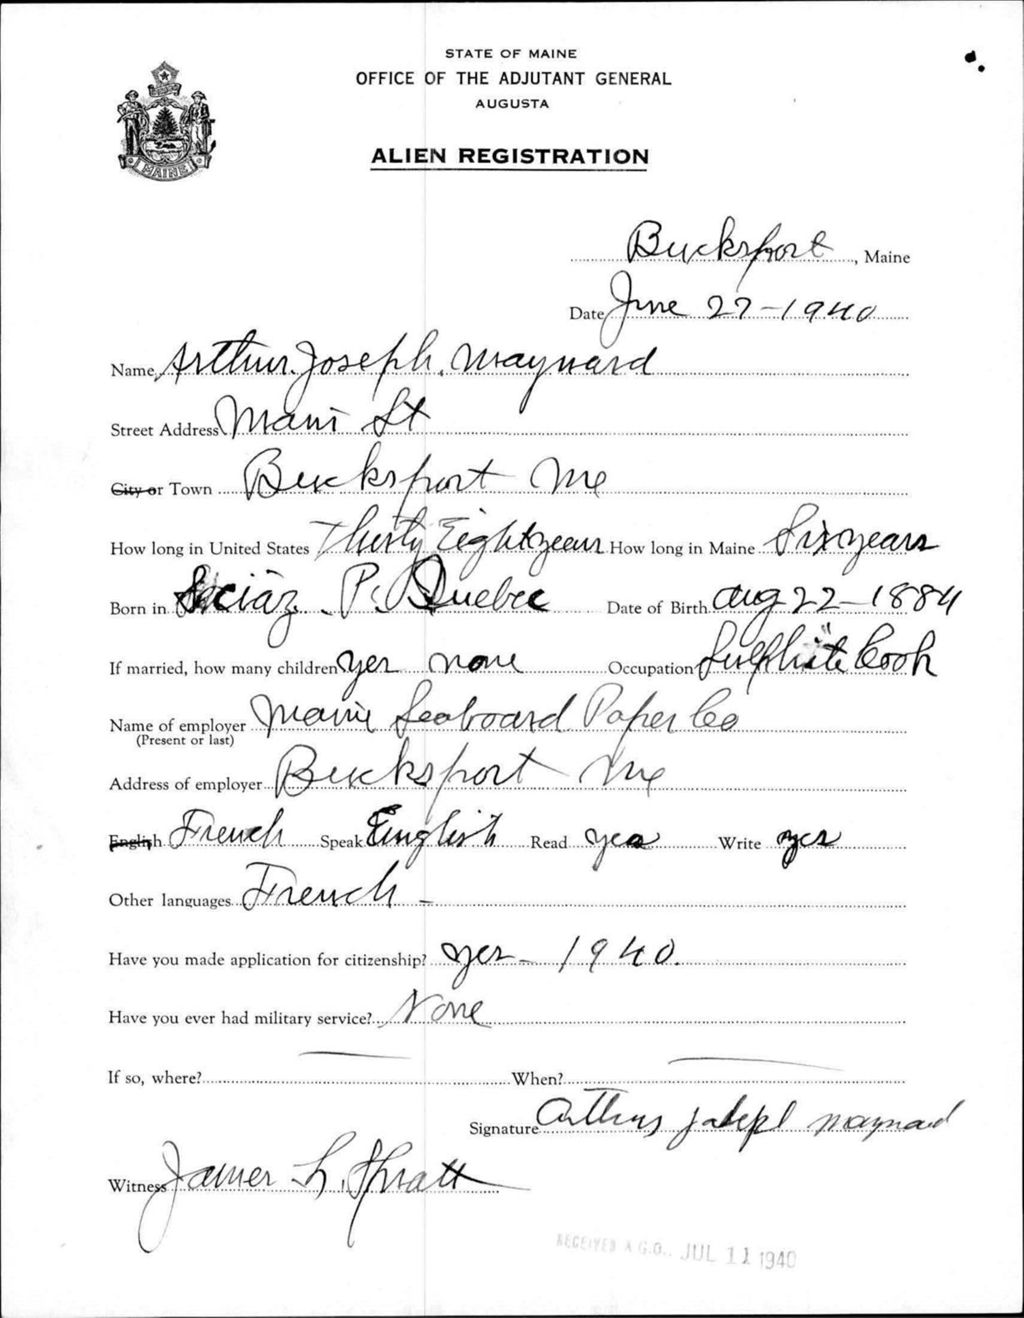 STATE OF MAINE
OFFICE OF THE ADJUTANT GENERAL
AUGUSTA
ALIEN REGISTRATION
MAINE
Bucksport, Maine
Date June 27-1940
Name Arthur Joseph. Maynard
Street Address Main St
City or Town Bucksport Me
How long in United States Thirty Eight years How long in Maine Six years
Born in P. Quebec Date of Birth Aug 22-1884
If married, how many children yes none Occupation Sulphite Cook
Name of employer Maine Seaboard Paper Co
(Present or last)
Address of employer Bucksport Me
English French Speak English Read yes Write yes
Other languages French -
Have you made application for citizenship? yes - 1940.
Have you ever had military service? None
If so, where? When?
Signature Arthur Joseph Maynard
Witness James L. Spratt
RECEIVED A.G.O. JUL 11 1940